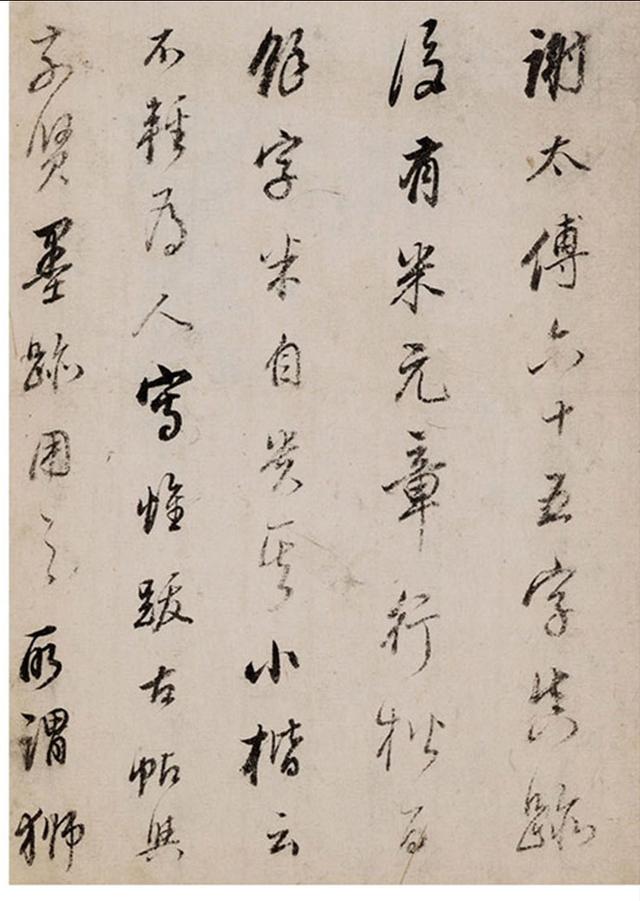 謝太傅六十五字真跡
後有米元章行楷百
餘字米自貴其小楷云
不輕為人寫惟跋古帖與
前賢墨跡用之所謂獅